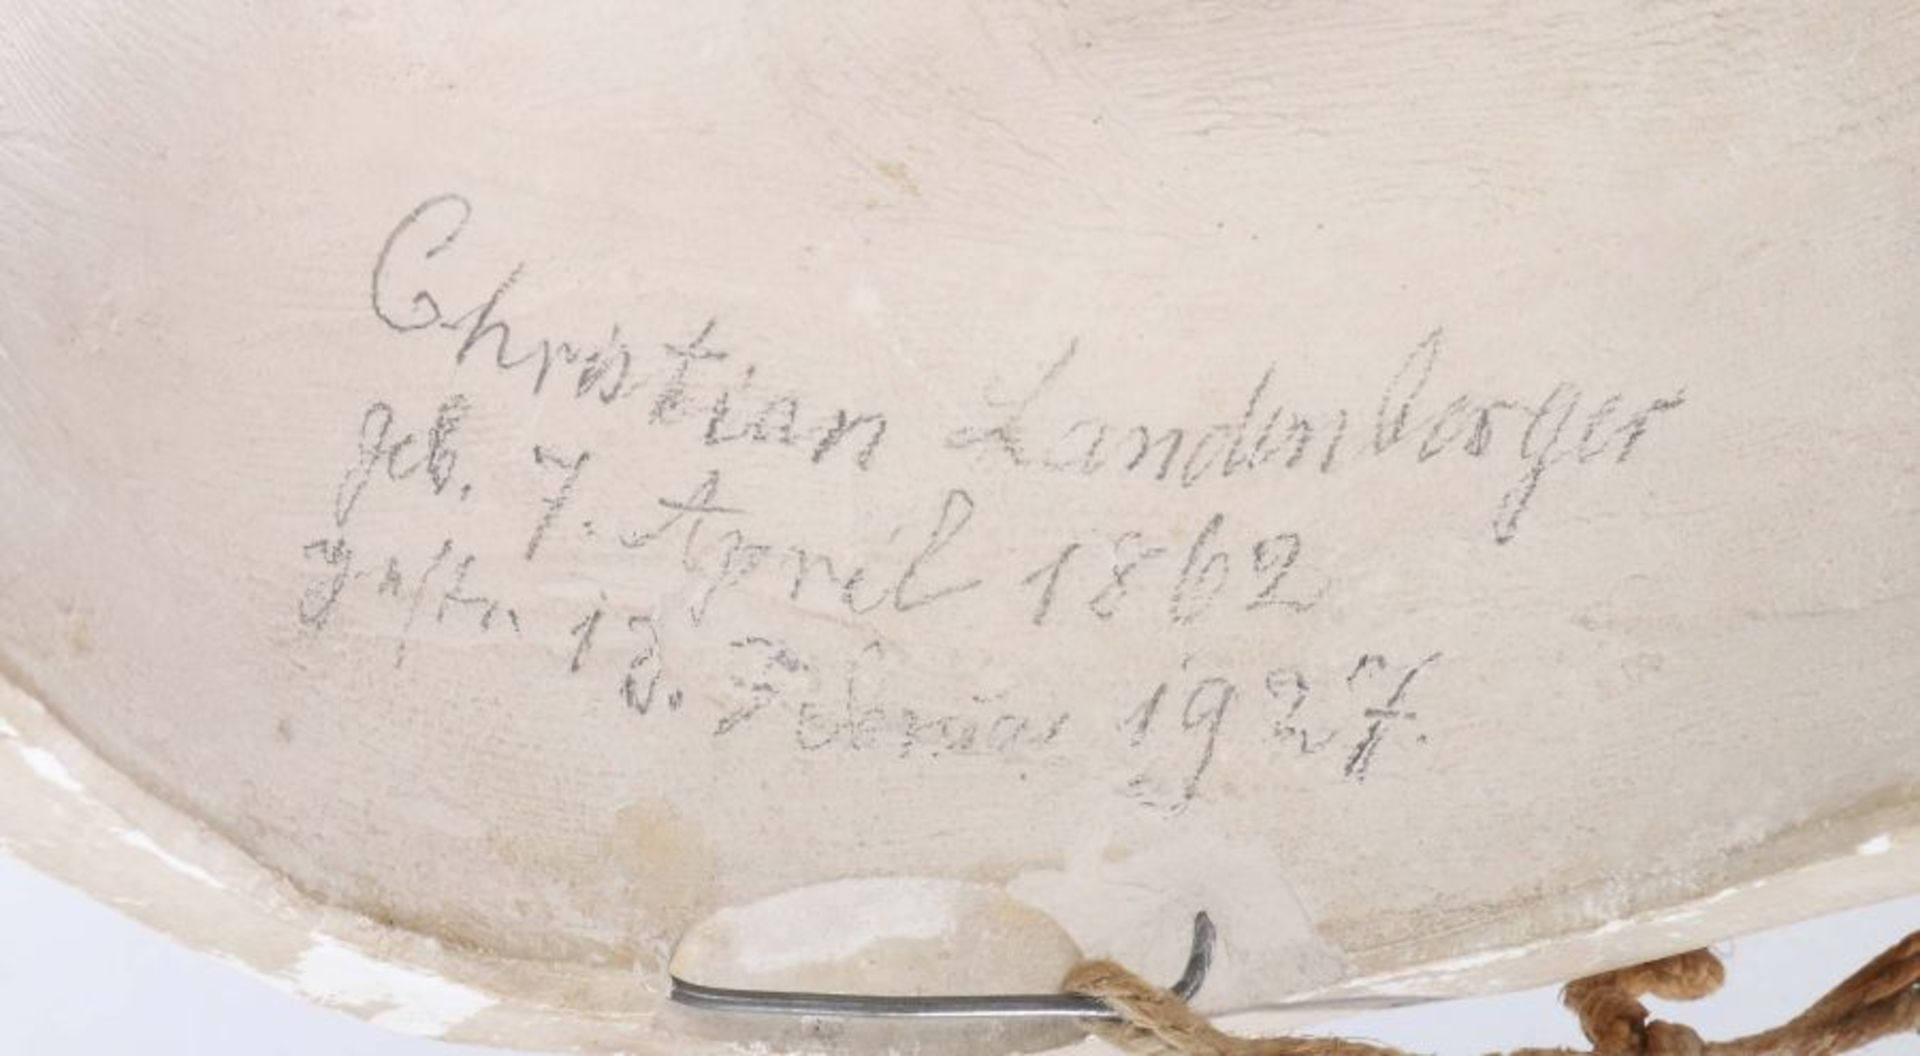 Christian Landenberger
geb. 7. April 1862
13. Februar 1927.